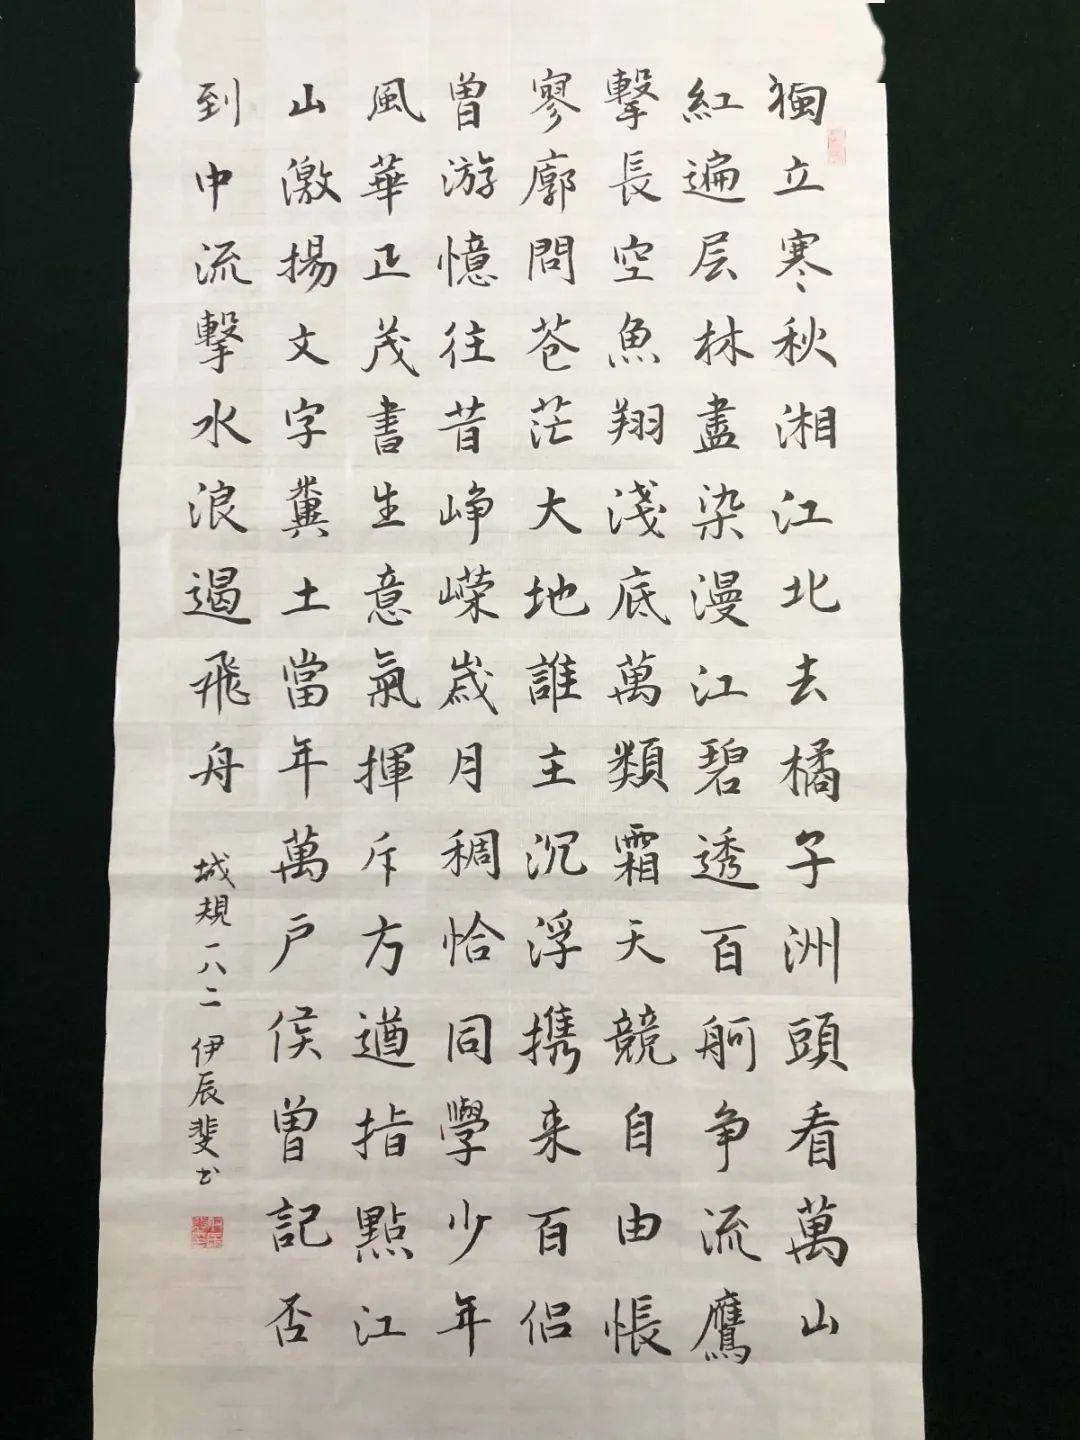 獨立寒秋湘江北去橘子洲頭看萬山
紅遍层林盡染漫江碧透百舸争流鷹
擊長空魚翔淺底萬類霜天競自由悵
寥廓問苍茫大地誰主沉浮携来百侣
曾游憶往昔峥嵘歲月稠恰同學少年
風華正茂書生意氣揮斥方遒指點江
山激揚文字糞土當年萬户侯曾記否
到中流擊水浪遏飛舟
城規一八二伊辰斐书